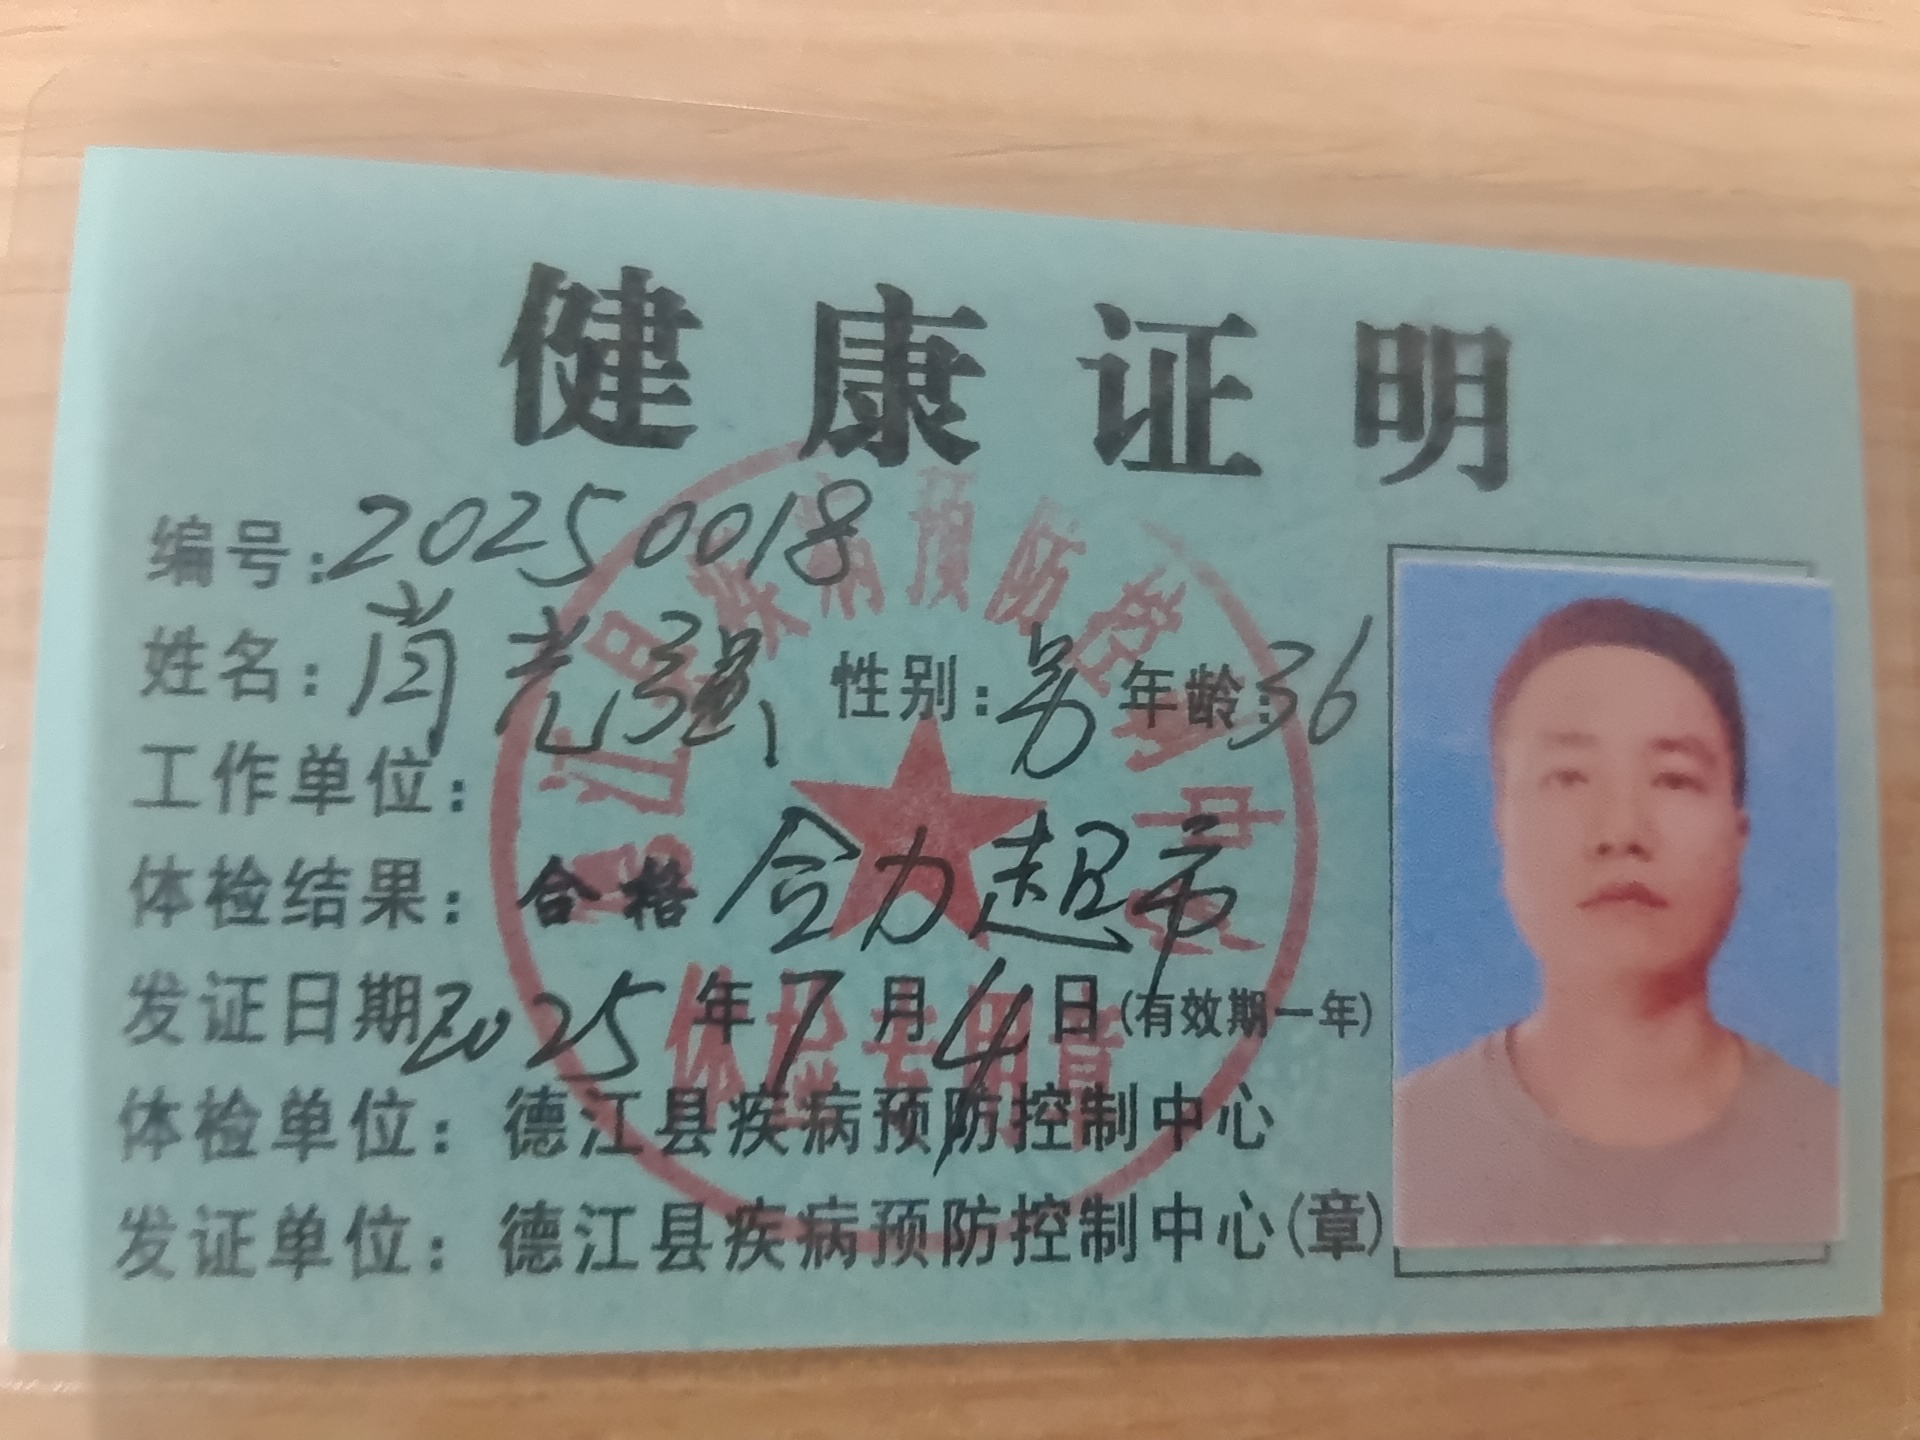 健康证明
编号:20250018
姓名:肖光强 性别:男 年龄:36
工作单位:
体检结果:合格 合力超市
发证日期2025年7月4日(有效期一年)
体检单位:德江县疾病预防控制中心
发证单位:德江县疾病预防控制中心(章)
德江县疾病预防控制中心
体检专用章